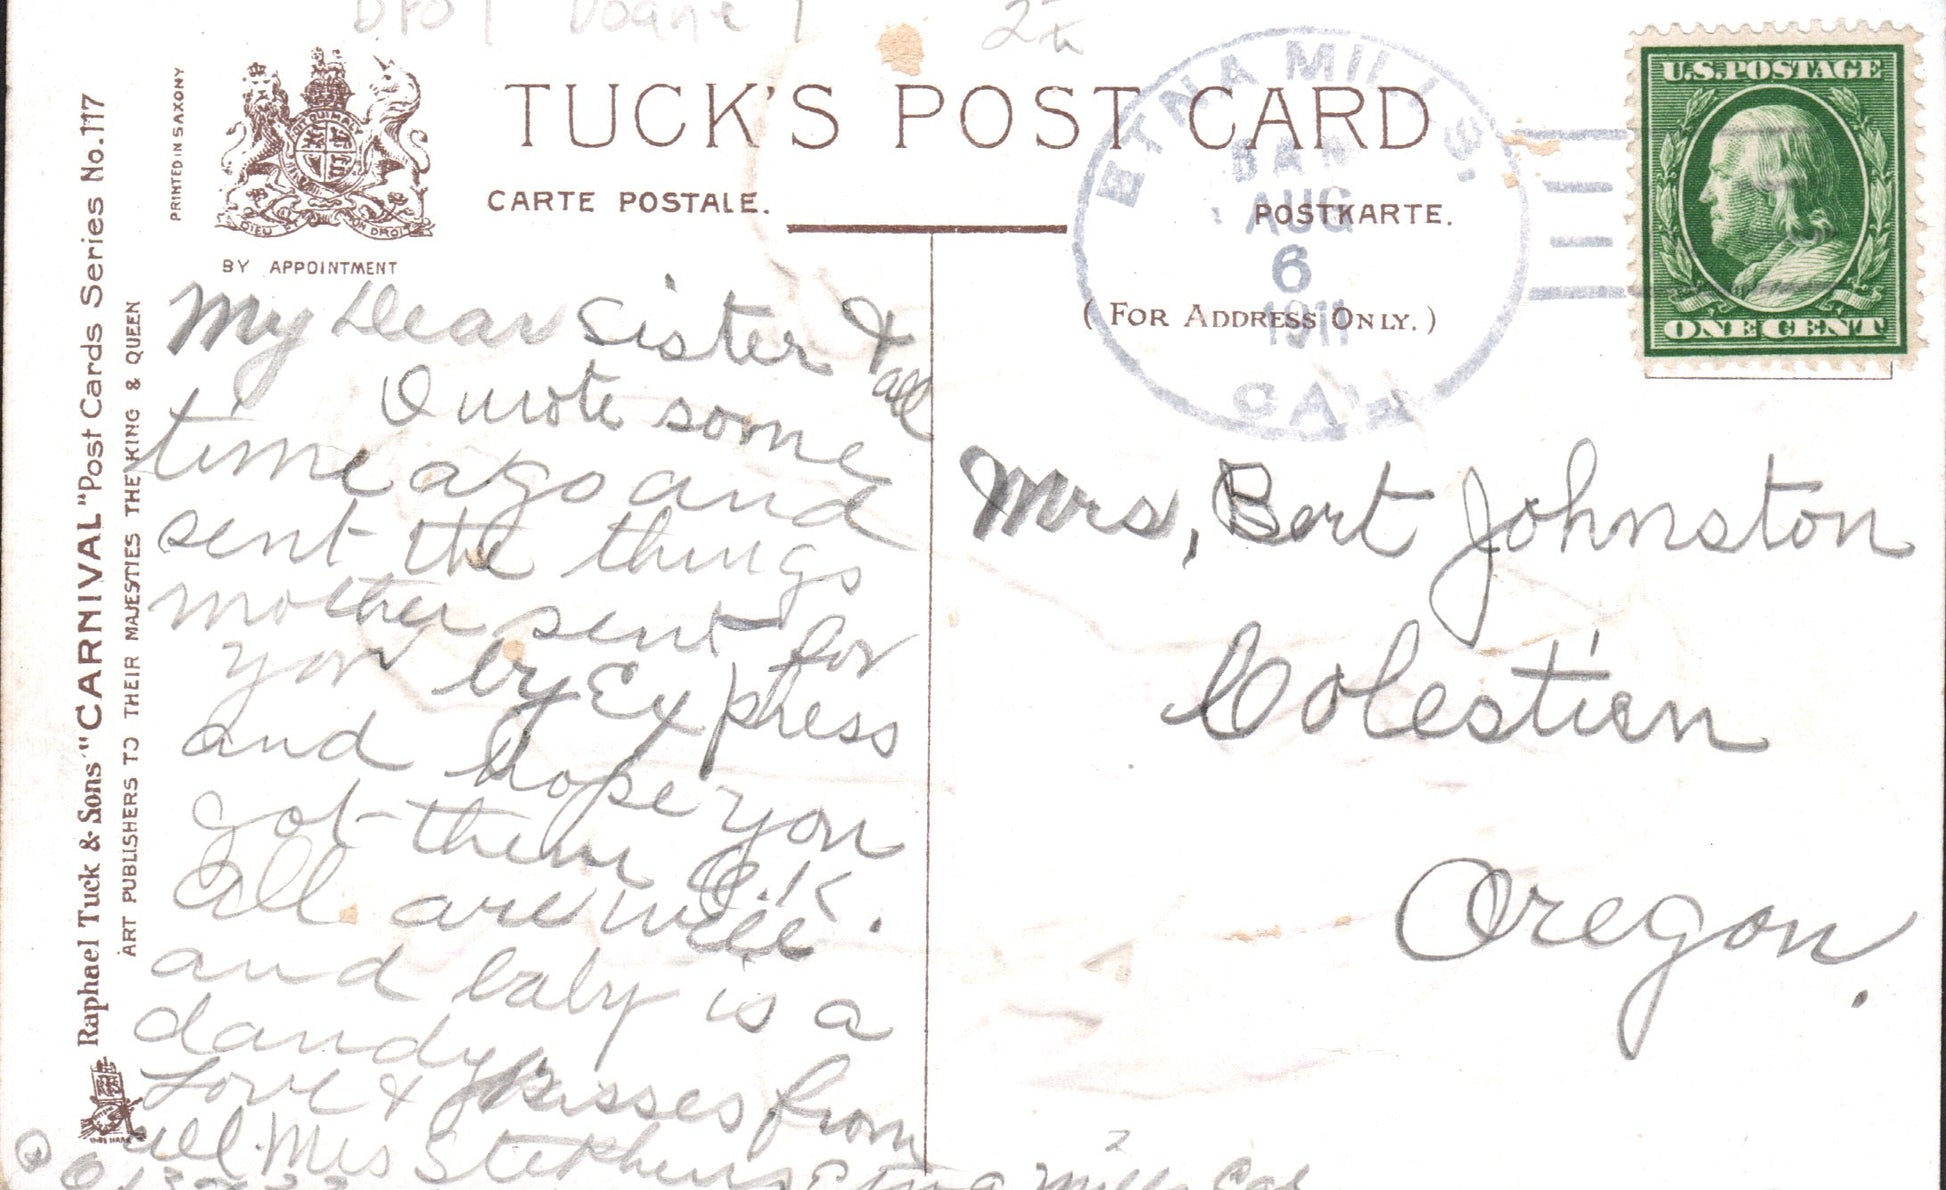 DPO / Doane 1
2
PRINTED IN SAXONY
Raphael Tuck & Sons' "CARNIVAL" Post Cards Series No. 117
ART PUBLISHERS TO THEIR MAJESTIES THE KING & QUEEN
DIEU ET MON DROIT
BY APPOINTMENT
TUCK'S POST CARD
CARTE POSTALE.
POSTKARTE.
(FOR ADDRESS ONLY.)
ETNA MILLS,
8 AM
AUG
6
1911
CAL
U.S.POSTAGE
ONE CENT
My Dear Sister &
all
I wrote some
time ago and
sent the things
mother sent for
you by Express
and hope you
got them O.K.
All are well
and baby is a
dandy
Love & Kisses from
all. Mrs Stephens Etna Mills Cal
Mrs, Bert Johnston
Colestien
Oregon.